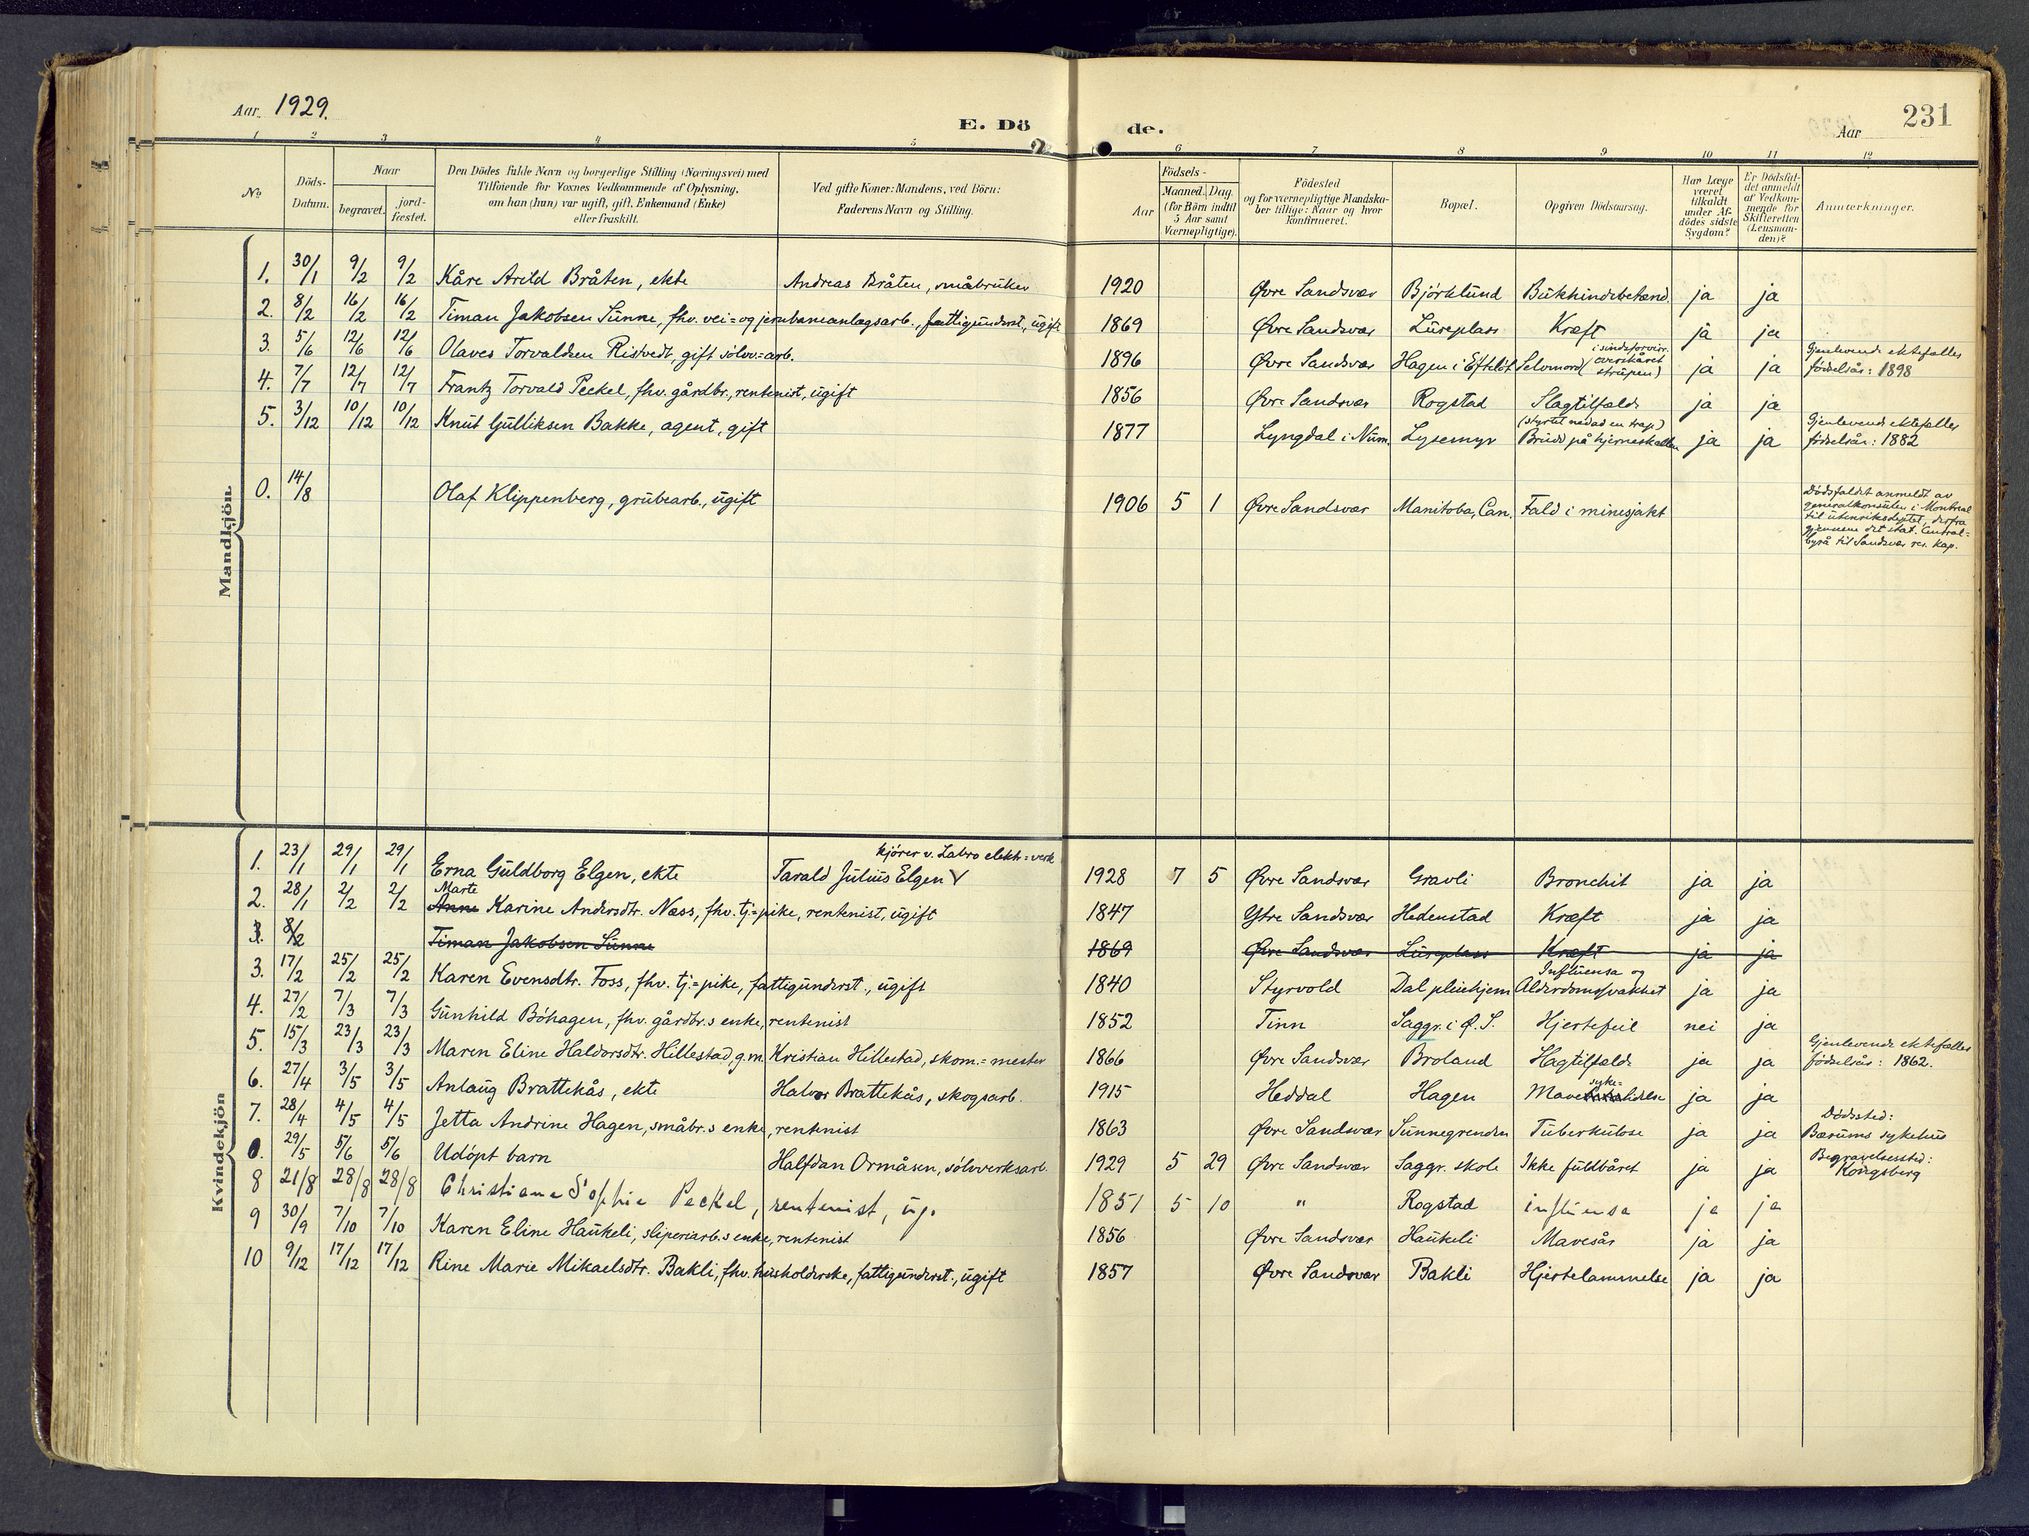 Aar. 1929.
E. Döde.
Aar
231
1 2 3 4 5 6 7 8 9 10 11 12
No.
Döds-Datum.
Naar
begravet.
jordfæstet.
Den Dödes fulde Navn og borgerlige Stilling (Næringsvei) med
Tilföiende for Voxnes Vedkommende af Oplysning,
om han (hun) var ugift, gift, Enkemand (Enke)
eller fraskilt.
Ved gifte Koner: Mandens, ved Börn:
Faderens Navn og Stilling.
Födsels-
Aar
Maaned. Dag.
(for Börn indtil
5 Aar samt
Værnepligtige).
Födested
og for værnepligtige Mandskaber tillige: Naar og hvor
konfirmeret.
Bopæl.
Opgiven Dödsaarsag.
Har Læge
været
tilkaldt
under Afdödes sidste
Sygdom?
Er Dödsfaldet anmeldt
af Vedkommende for
Skifteretten
(Lensmanden)?
Anmærkninger.
Mandkjön.
1. 30/1 9/2 9/2 Kåre Arild Bråten, ekte Andreas Bråten, småbruker 1920 Øvre Sandsvær Bjørklund Bukhindebetænd. ja ja
2. 8/2 16/2 16/2 Timan Jakobsen Sunne, fhv. vei= og jernbaneanlægsarb., fattigunderst., ugift 1869 Øvre Sandsvær Lureplass Kræft ja ja
3. 5/6 12/6 12/6 Olaves Torvaldsen Ristvedt, gift sølvv=arb. 1896 Øvre Sandsvær Hagen i Efteløt Selvmord (i sindsforvirr. overskåret strupen) ja ja Gjenlevende ektefælles fødselsår: 1898
4. 7/7 12/7 12/7 Frantz Torvald Peckel, fhv. gårdbr., rentenist, ugift 1856 Øvre Sandsvær Rogstad Slagtilfælde ja ja
5. 3/12 10/12 10/12 Knut Gulliksen Bakke, agent, gift 1877 Lyngdal i Num. Lysemyr (styrtet nedad en trap.) Brudd på hjerneskallen ja ja Gjenlevende ektefælles fødselsår: 1882
0. 14/8 Olaf Klippenberg, grubearb., ugift 1906 5 1 Øvre Sandsvær Manitoba, Can. Fald i minesjakt
Dødsfaldet anmeldt av
generalkonsulen i Montreal
til utenriksdeptet, derfra
gjennem det stat. Central=
byrå til Sandsvær res. kap.
Kvindekjön
1. 23/1 29/1 29/1 Erna Guldborg Elgen, ekte Tarald Julius Elgen √ kjører v. Labro elektr=verk 1928 7 5 Øvre Sandsvær Gravli Bronchit ja ja
2. 28/1 2/2 2/2 Marte Anne Karine Andersdtr. Næss, fhv. tj=pike, rentenist, ugift 1847 Ytre Sandsvær Hedenstad Kræft ja ja
3. 8/2 Timan Jakobsen Sunne 1869 Øvre Sandsvær Lureplass Kræft ja ja
3. 17/2 25/2 25/2 Karen Evensdtr. Foss, fhv. tj.=pike, fattigunderst., ugift 1840 Styrvold Dal pleiehjem Influensa og Alderdomssvakhet ja ja
4. 27/2 7/3 7/3 Gunhild Böhagen, fhv. gårdbr.s enke, rentenist 1852 Tinn Saggr. i Ø. S. Hjertefeil nei ja
5. 15/3 23/3 23/3 Maren Eline Haldorsdtr. Hillestad, g.m. Kristian Hillestad, skom.=mester 1866 Øvre Sandsvær Broland Slagtilfæld= ja ja Gjenlevende ektefælles fødselsår: 1862.
6. 27/4 3/5 3/5 Anlaug Brattekås, ekte Halvor Brattekås, skogsarb. 1915 Heddal Hagen Mave syke- ja ja
7. 28/4 4/5 4/5 Jetta Andrine Hagen, småbr.s enke, rentenist 1863 Øvre Sandsvær Sunnegrenden Tuberkulose ja ja Dødssted: Bærums sykehus
0. 29/5 5/6 5/6 Udöpt barn Halfdan Ormåsen, sölvverksarb. 1929 5 29 Øvre Sandsvær Saggr. skole Ikke fuldbåret ja ja Begravelsessted: Kongsberg
8 21/8 28/8 28/8 Christiane Sophie Peckel, rentenist, ug. 1851 5 10 " Rogstad influensa ja ja
9 30/9 7/10 7/10 Karen Eline Haukeli, sliperiarb.s enke, rentenist 1856 Øvre Sandsvær Haukeli Mavesår ja ja
10 9/12 17/12 17/12 Rine Marie Mikaelsdtr. Bakli, fhv. husholderske, fattigunderst., ugift 1857 Øvre Sandsvær Bakli Hjertelammelse ja ja